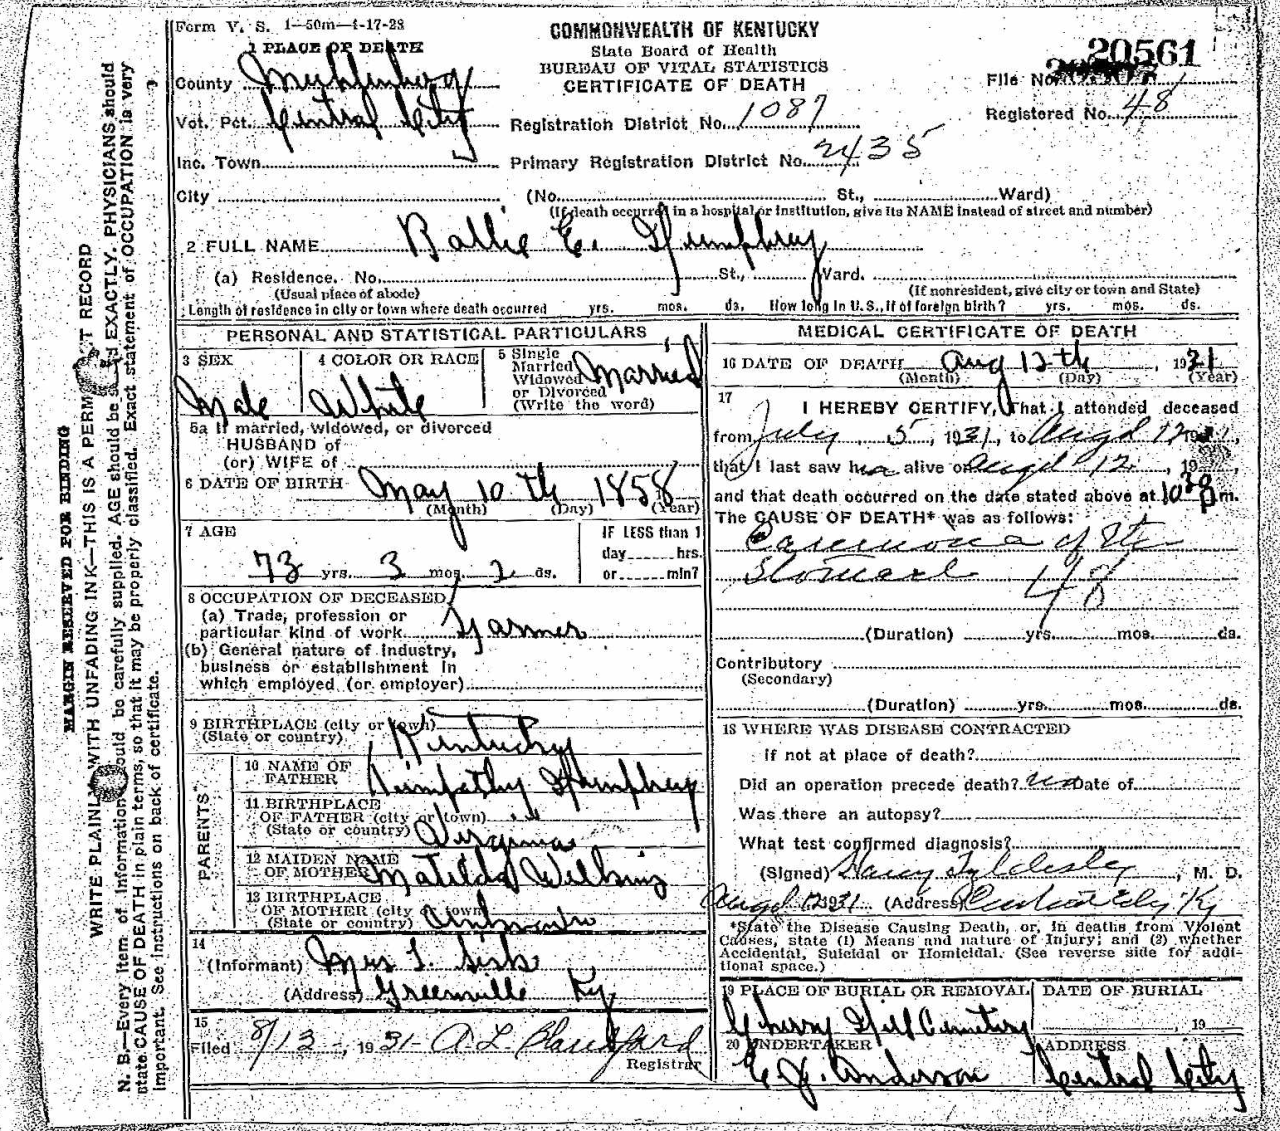 Form V. S. 1—50m—4-17-28
COMMONWEALTH OF KENTUCKY
State Board of Health
BUREAU OF VITAL STATISTICS
CERTIFICATE OF DEATH
20561
File No.
Registered No. 48
1 PLACE OF DEATH
County Muhlenberg
Vot. Pct. Central City
Registration District No. 1087
Inc. Town
Primary Registration District No. 2435
City (No. St., Ward)
(If death occurred in a hospital or institution, give its NAME instead of street and number)
2 FULL NAME Rallie E. Humphrey
(a) Residence. No. St., Ward.
(Usual place of abode) (If nonresident, give city or town and State)
Length of residence in city or town where death occurred yrs. mos. ds. How long in U.S., if of foreign birth? yrs. mos. ds.
PERSONAL AND STATISTICAL PARTICULARS
3 SEX
Male
4 COLOR OR RACE
White
5 Single
Married
Widowed
or Divorced
(Write the word)
Married
5a If married, widowed, or divorced
HUSBAND of
(or) WIFE of
6 DATE OF BIRTH May 10th 1858
(Month) (Day) (Year)
7 AGE
73 yrs. 3 mos. 2 ds.
IF LESS than 1
day hrs.
or min?
8 OCCUPATION OF DECEASED
(a) Trade, profession or
particular kind of work Farmer
(b) General nature of industry,
business or establishment in
which employed (or employer)
9 BIRTHPLACE (city or town)
(State or country) Kentucky
PARENTS
10 NAME OF
FATHER Humphrey
11 BIRTHPLACE
OF FATHER (city or town)
(State or country) Virginia
12 MAIDEN NAME
OF MOTHER Matilda
13 BIRTHPLACE
OF MOTHER (city or town)
(State or country)
14
(Informant) Mrs
(Address) Greenville Ky
15
Filed 8/13, 1931
Registrar
MEDICAL CERTIFICATE OF DEATH
16 DATE OF DEATH Aug 12th, 1931
(Month) (Day) (Year)
17
I HEREBY CERTIFY, That I attended deceased
from July 5, 1931, to Augst 12 19
that I last saw h alive on Augst 12, 19
and that death occurred on the date stated above at 10 30 p m.
The CAUSE OF DEATH* was as follows:
of the
Stomach 48
(Duration) yrs. mos. ds.
Contributory
(Secondary)
(Duration) yrs. mos. ds.
18 WHERE WAS DISEASE CONTRACTED
If not at place of death?
Did an operation precede death? no Date of
Was there an autopsy?
What test confirmed diagnosis?
(Signed) , M. D.
Augst 1931 (Address) Central City Ky
*State the Disease Causing Death, or, in deaths from Violent
Causes, state (1) Means and nature of Injury; and (2) whether
Accidental, Suicidal or Homicidal. (See reverse side for addi-
tional space.)
19 PLACE OF BURIAL OR REMOVAL
Cherry Hill Cemetery
DATE OF BURIAL
, 19
20 UNDERTAKER
E J. Anderson
ADDRESS
Central City
MARGIN RESERVED FOR BINDING
WRITE PLAINLY WITH UNFADING INK—THIS IS A RECORD
N. B.—Every item of information should be carefully supplied. AGE should be EXACTLY. PHYSICIANS should
state CAUSE OF DEATH in plain terms, so that it may be properly classified. Exact statement of OCCUPATION is very
important. See instructions on back of certificate.